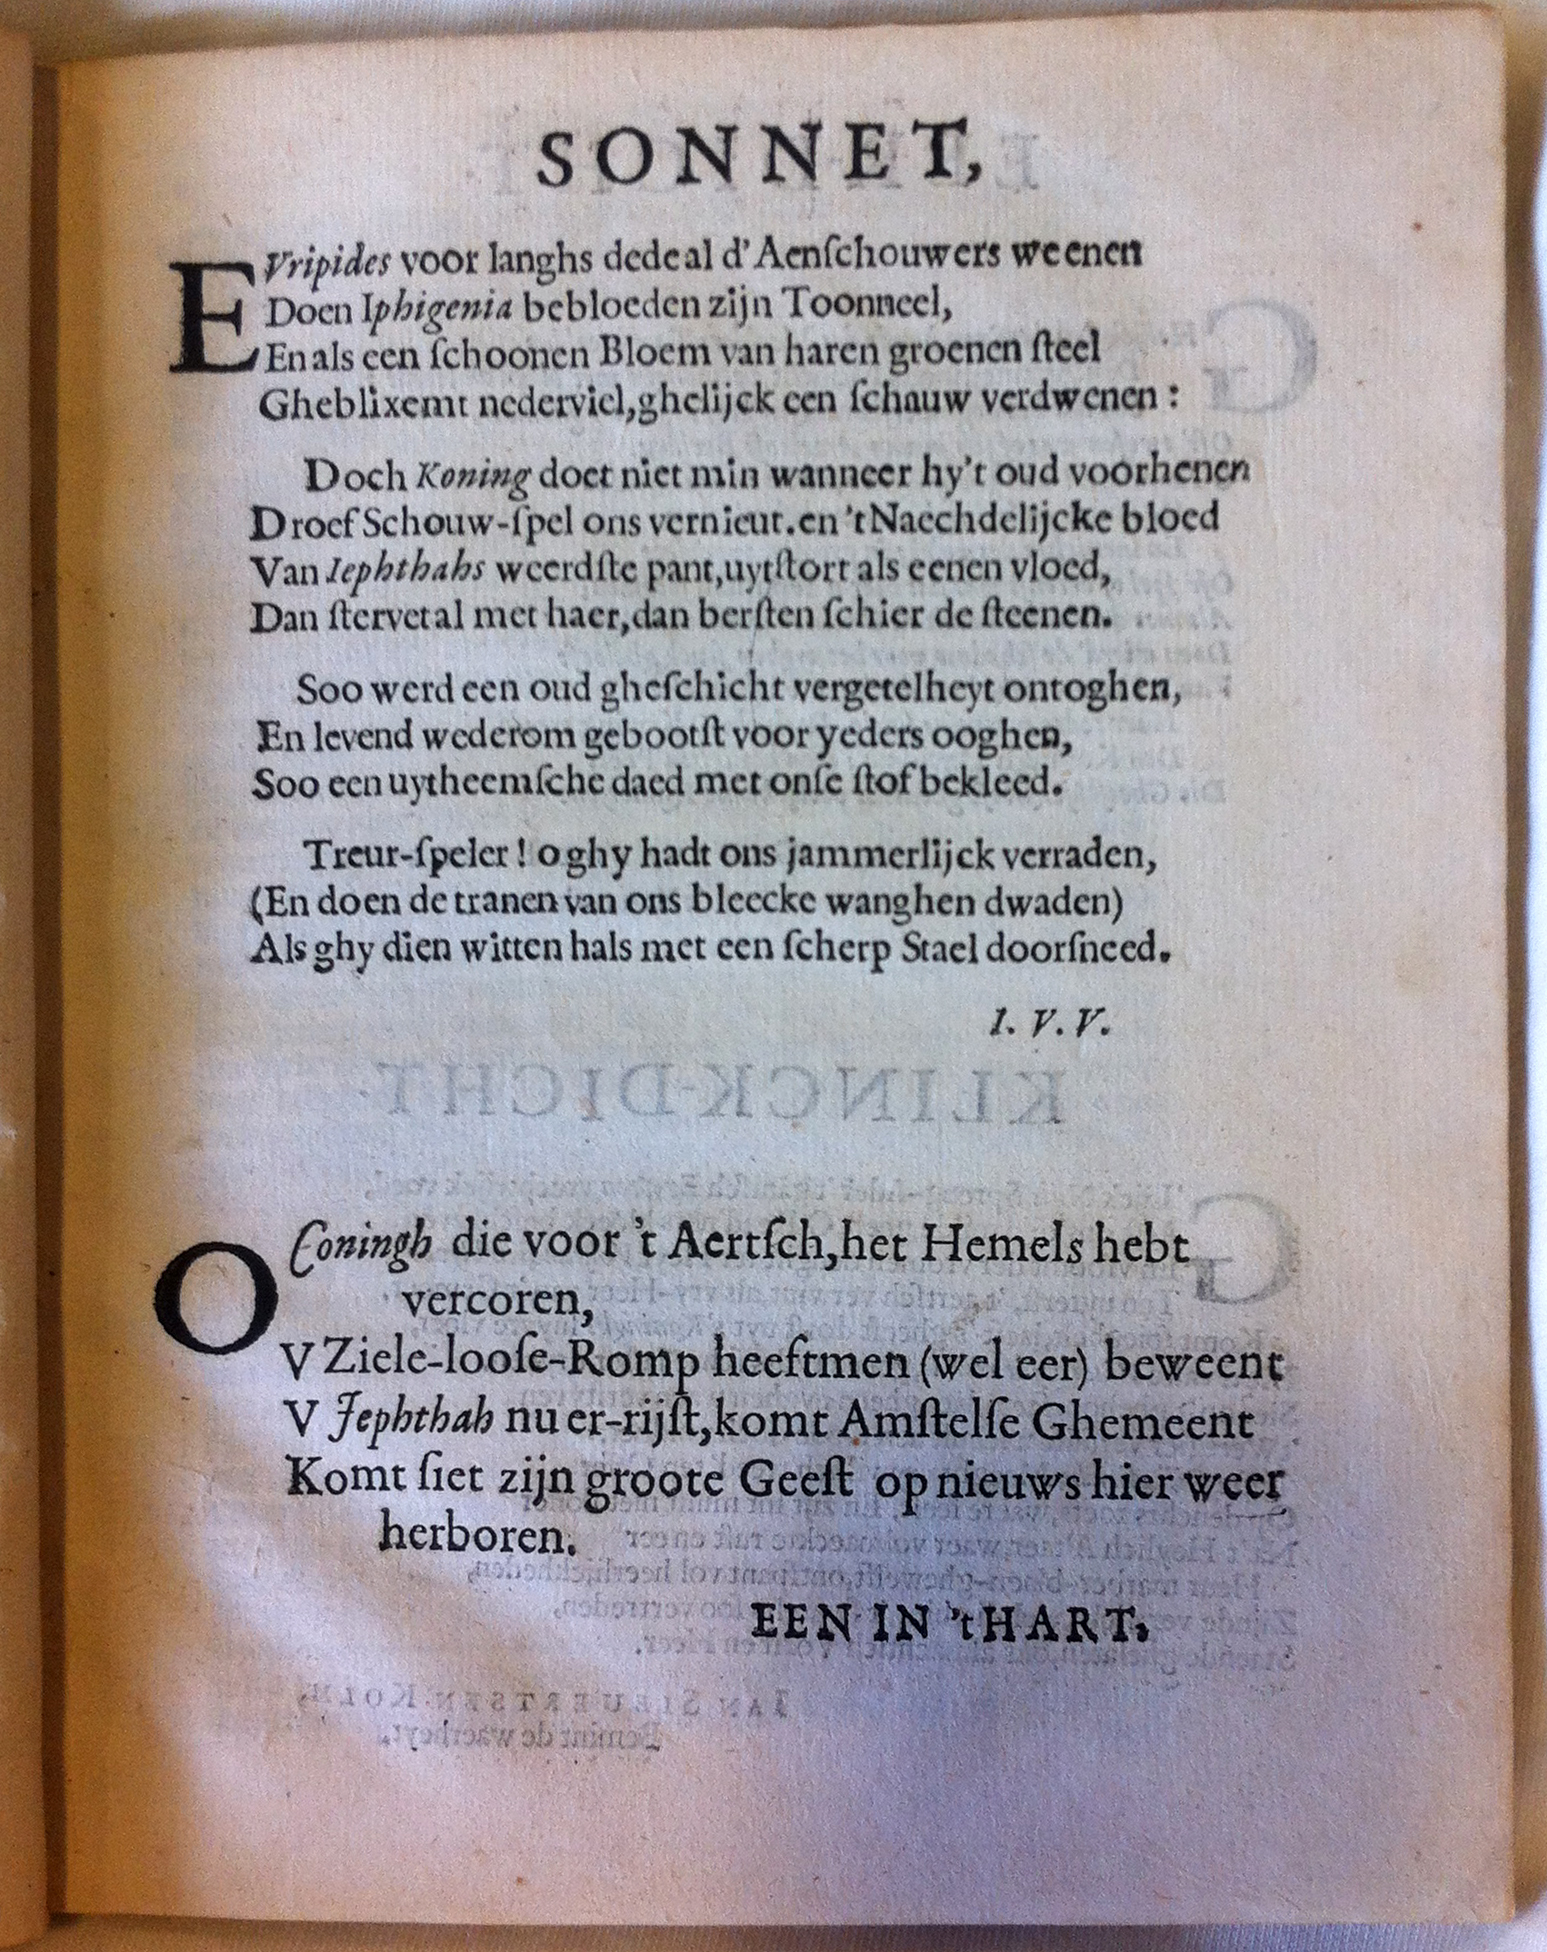 SONNET,
EVripides voor langhs dede al d'Aenſchouwers weenen
Doen Iphigenia bebloeden zijn Toonneel,
En als een ſchoonen Bloem van haren groenen ſteel
Gheblixemt nederviel, ghelijck een ſchauw verdwenen:
Doch Koning doet niet min wanneer hy't oud voorhenen
Droef Schouw-ſpel ons vernieut. en 't Naechdelijcke bloed
Van Iephthahs weerdſte pant, uytſtort als eenen vloed,
Dan ſtervet al met haer, dan berſten ſchier de ſteenen.
Soo werd een oud gheſchicht vergetelheyt ontoghen,
En levend wederom gebootſt voor yeders ooghen,
Soo een uytheemſche daed met onſe ſtof bekleed.
Treur-ſpeler! o ghy hadt ons jammerlijck verraden,
(En doen de tranen van ons bleecke wanghen dwaden)
Als ghy dien witten hals met een ſcherp Stael doorſneed.
I. V. V.
O Coningh die voor 't Aertſch, het Hemels hebt
vercoren,
V Ziele-looſe-Romp heeftmen (wel eer) beweent
V Jephthah nu er-rijſt, komt Amſtelſe Ghemeent
Komt ſiet zijn groote Geeſt op nieuws hier weer
herboren.
EEN IN 't HART.